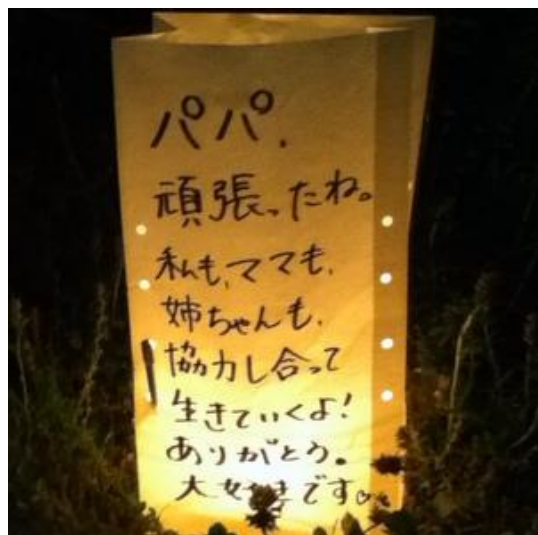 パパ、
頑張ったね。
私も、ママも、
姉ちゃんも、
協力し合って
生きていくよ!
ありがとう。
大好きです。♡